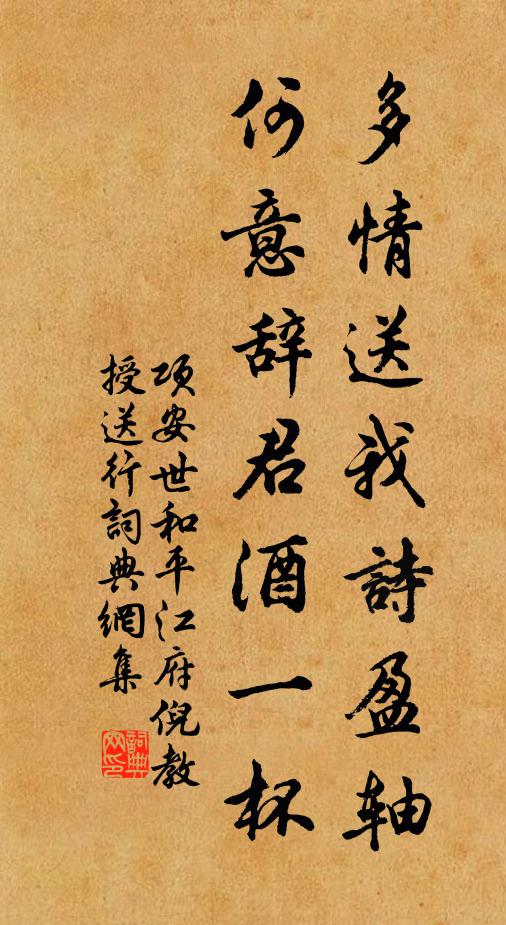 多情送我詩盈轴
何意辞君酒一杯
项安世和平江府倪教
授送行詞典網集
詞典
网印